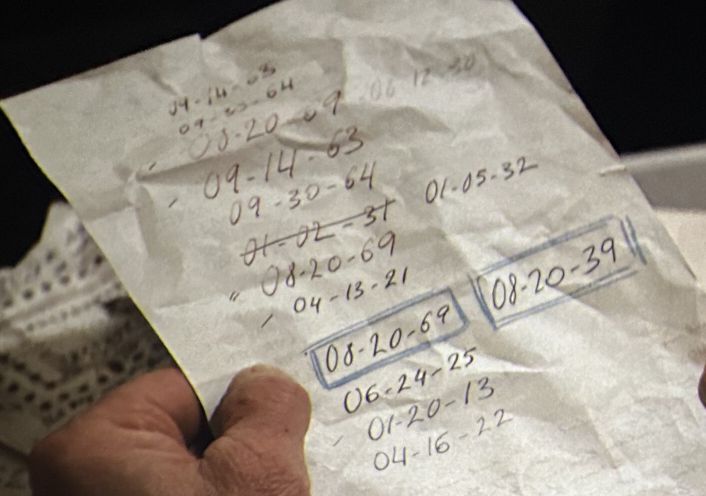 09-14-63
09-30-64
08-20-69 06-12-30
09-14-63
09-30-64
01-02-31 01-05-32
08-20-69
04-13-21
08-20-69 08-20-39
06-24-25
01-20-13
04-16-22